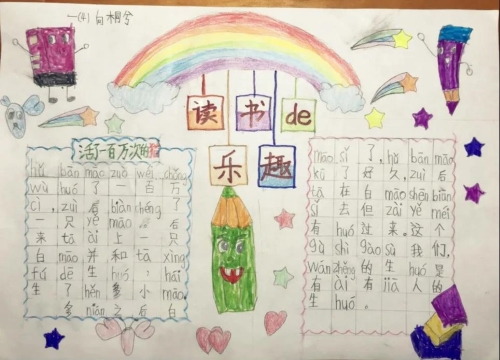 一(4) 向桐兮
读书de
乐趣
活了一百万次的猫
hǔ bān māo zuò wéi chǒng
wù huó了一百万
cì，zuì后biàn chéng了
一只yě māo，后
来tā ài上一只
白māo并和tā xìng
fú dē生huó，hái
生了hěn多小māo。
多nián之后白
māo sǐ了，hǔ bān māo
kū了好久，zuì后
tā在白māo shēn biān
sǐ去但zài yě méi
有huó过来。这个
gù shi gào sù我们，
wán zhěng的生huó是
有ài有jiā人的
生huó。